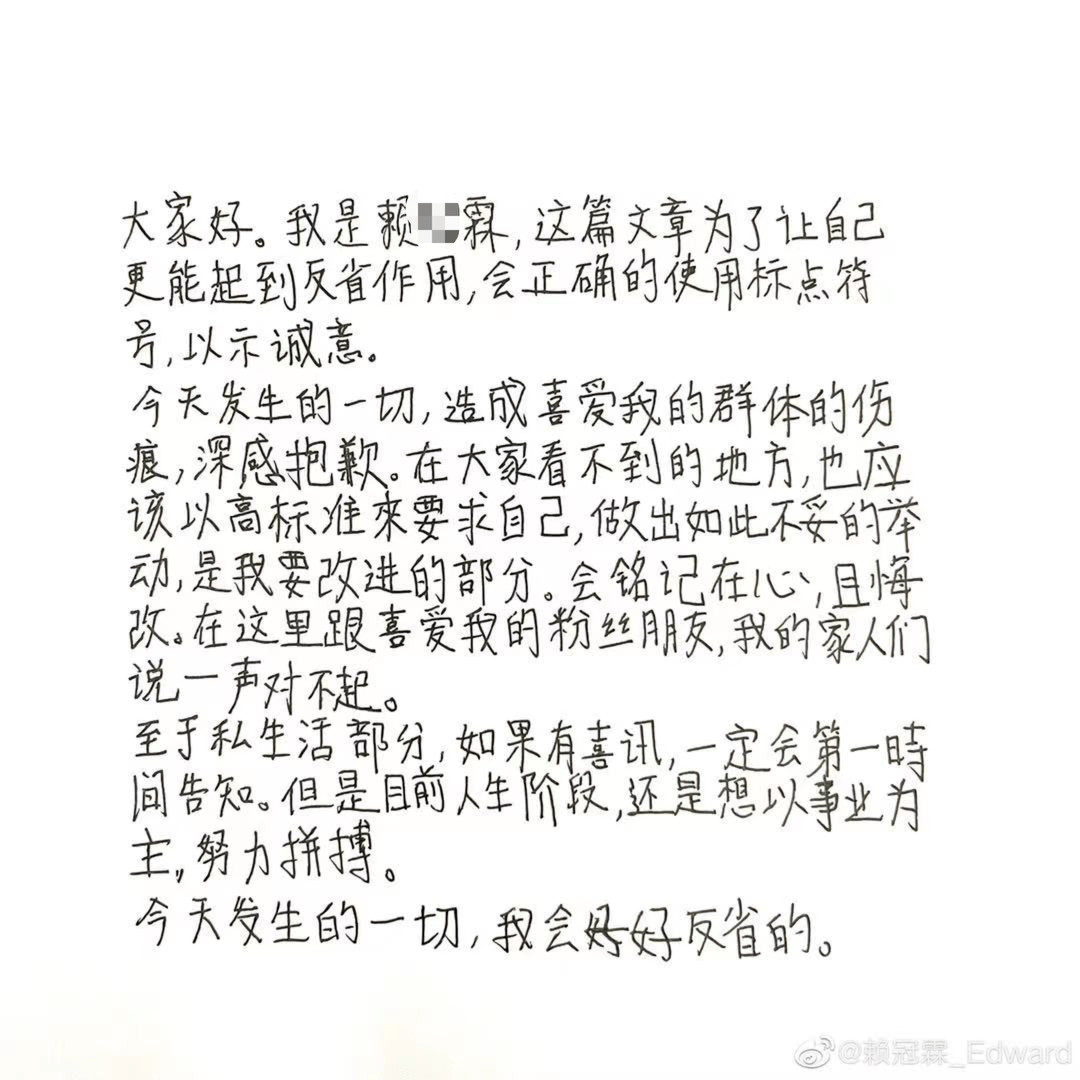 大家好。我是赖霖，这篇文章为了让自己
更能起到反省作用，会正确的使用标点符
号，以示诚意。
今天发生的一切，造成喜爱我的群体的伤
痕，深感抱歉。在大家看不到的地方，也应
该以高标准來要求自己，做出如此不妥的举
动，是我要改进的部分。会铭记在心，且悔
改。在这里跟喜爱我的粉丝朋友，我的家人们
说一声对不起。
至于私生活部分，如果有喜讯，一定会第一時
间告知。但是目前人生阶段，还是想以事业为
主，努力拼搏。
今天发生的一切，我会好好反省的。
@赖冠霖_Edward